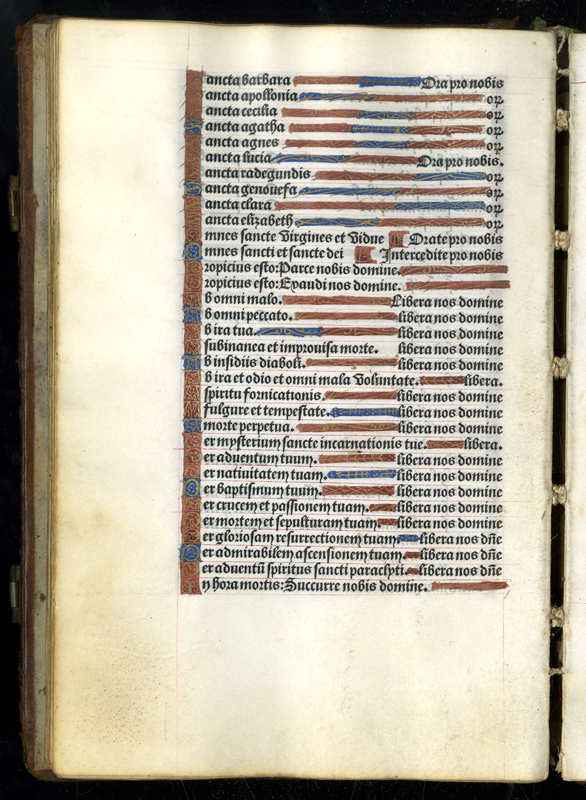 Sancta barbara Ora pro nobis
Sancta apollonia or.
Sancta cecilia or.
Sancta agatha or.
Sancta agnes or.
Sancta lucia Ora pro nobis.
Sancta radegundis or.
Sancta genovefa or.
Sancta clara or.
Sancta elizabeth or.
Omnes sancte Virgines et Vidue Orate pro nobis
Omnes sancti et sancte dei Intercedite pro nobis
Propicius esto: Parce nobis domine.
Propicius esto: Exaudi nos domine.
Ab omni malo. Libera nos domine
Ab omni peccato. libera nos domine
Ab ira tua. libera nos domine
A subitanea et improuisa morte. libera nos domine
Ab insidiis diaboli. libera nos domine
Ab ira et odio et omni mala Voluntate. libera.
A spiritu fornicationis. libera nos domine
A fulgure et tempestate. libera nos domine
A morte perpetua. libera nos domine
Per mysterium sancte incarnationis tue. libera.
Per aduentum tuum. libera nos domine
Per natiuitatem tuam. libera nos domine
Per baptismum tuum. libera nos domine
Per crucem et passionem tuam. libera nos domine
Per mortem et sepulturam tuam. libera nos domine
Per gloriosam resurrectionem tuam libera nos dñe
Per admirabilem ascensionem tuam. libera nos dñe
Per aduentū spiritus sancti paraclyti. libera nos dñe
In hora mortis: Succurre nobis domine.